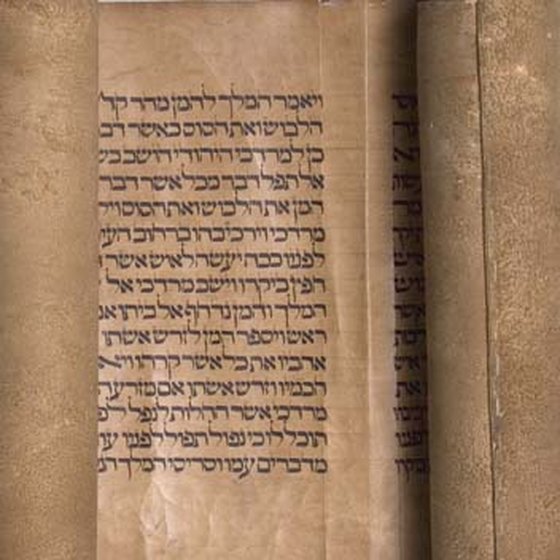 ויאמר המלך להמן מהר
הלבוש ואת הסוס כאשר
כן למרדכי היהודי היושב
אל תפל דבר מכל אשר
המן את הלבוש ואת הסוס
מרדכי וירכיבהו ברחוב
לפניו ככה יעשה לאיש אשר
חפץ ביקרו וישב מרדכי אל
המלך והמן נדחף אל ביתו
ראש ויספר המן לזרש אשתו
אהביו את כל אשר קרהו
חכמיו וזרש אשתו אם מזרע
מרדכי אשר החלות לנפל
תוכל לו כי נפול תפול לפניו
מדברים עמו וסריסי המלך